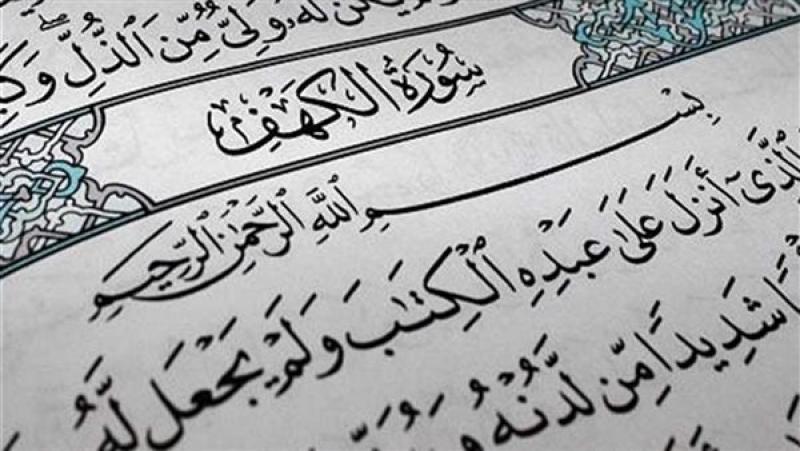 لَّهُۥ وَلِىٌّ مِّنَ ٱلذُّلِّ ۖ وَكَ
سُورَةُ الكَهْفِ
بِسْمِ ٱللَّهِ ٱلرَّحْمَٰنِ ٱلرَّحِيمِ
ٱلَّذِىٓ أَنزَلَ عَلَىٰ عَبْدِهِ ٱلْكِتَٰبَ وَلَمْ يَجْعَل لَّهُۥ
شَدِيدًا مِّن لَّدُنْهُ